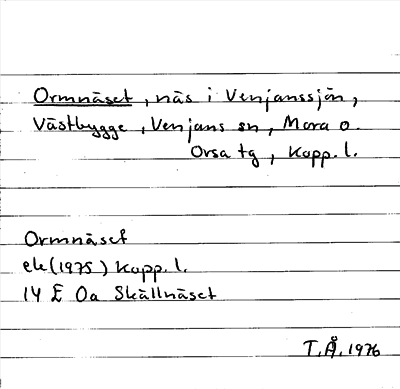 Ormnäset, näs i Venjanssjön,
Västbygge, Venjans sn, Mora o.
Orsa tg, Kopp. l.
Ormnäset
ek (1975) Kopp. l.
14 E 0a Skällnäset
T.Å. 1976